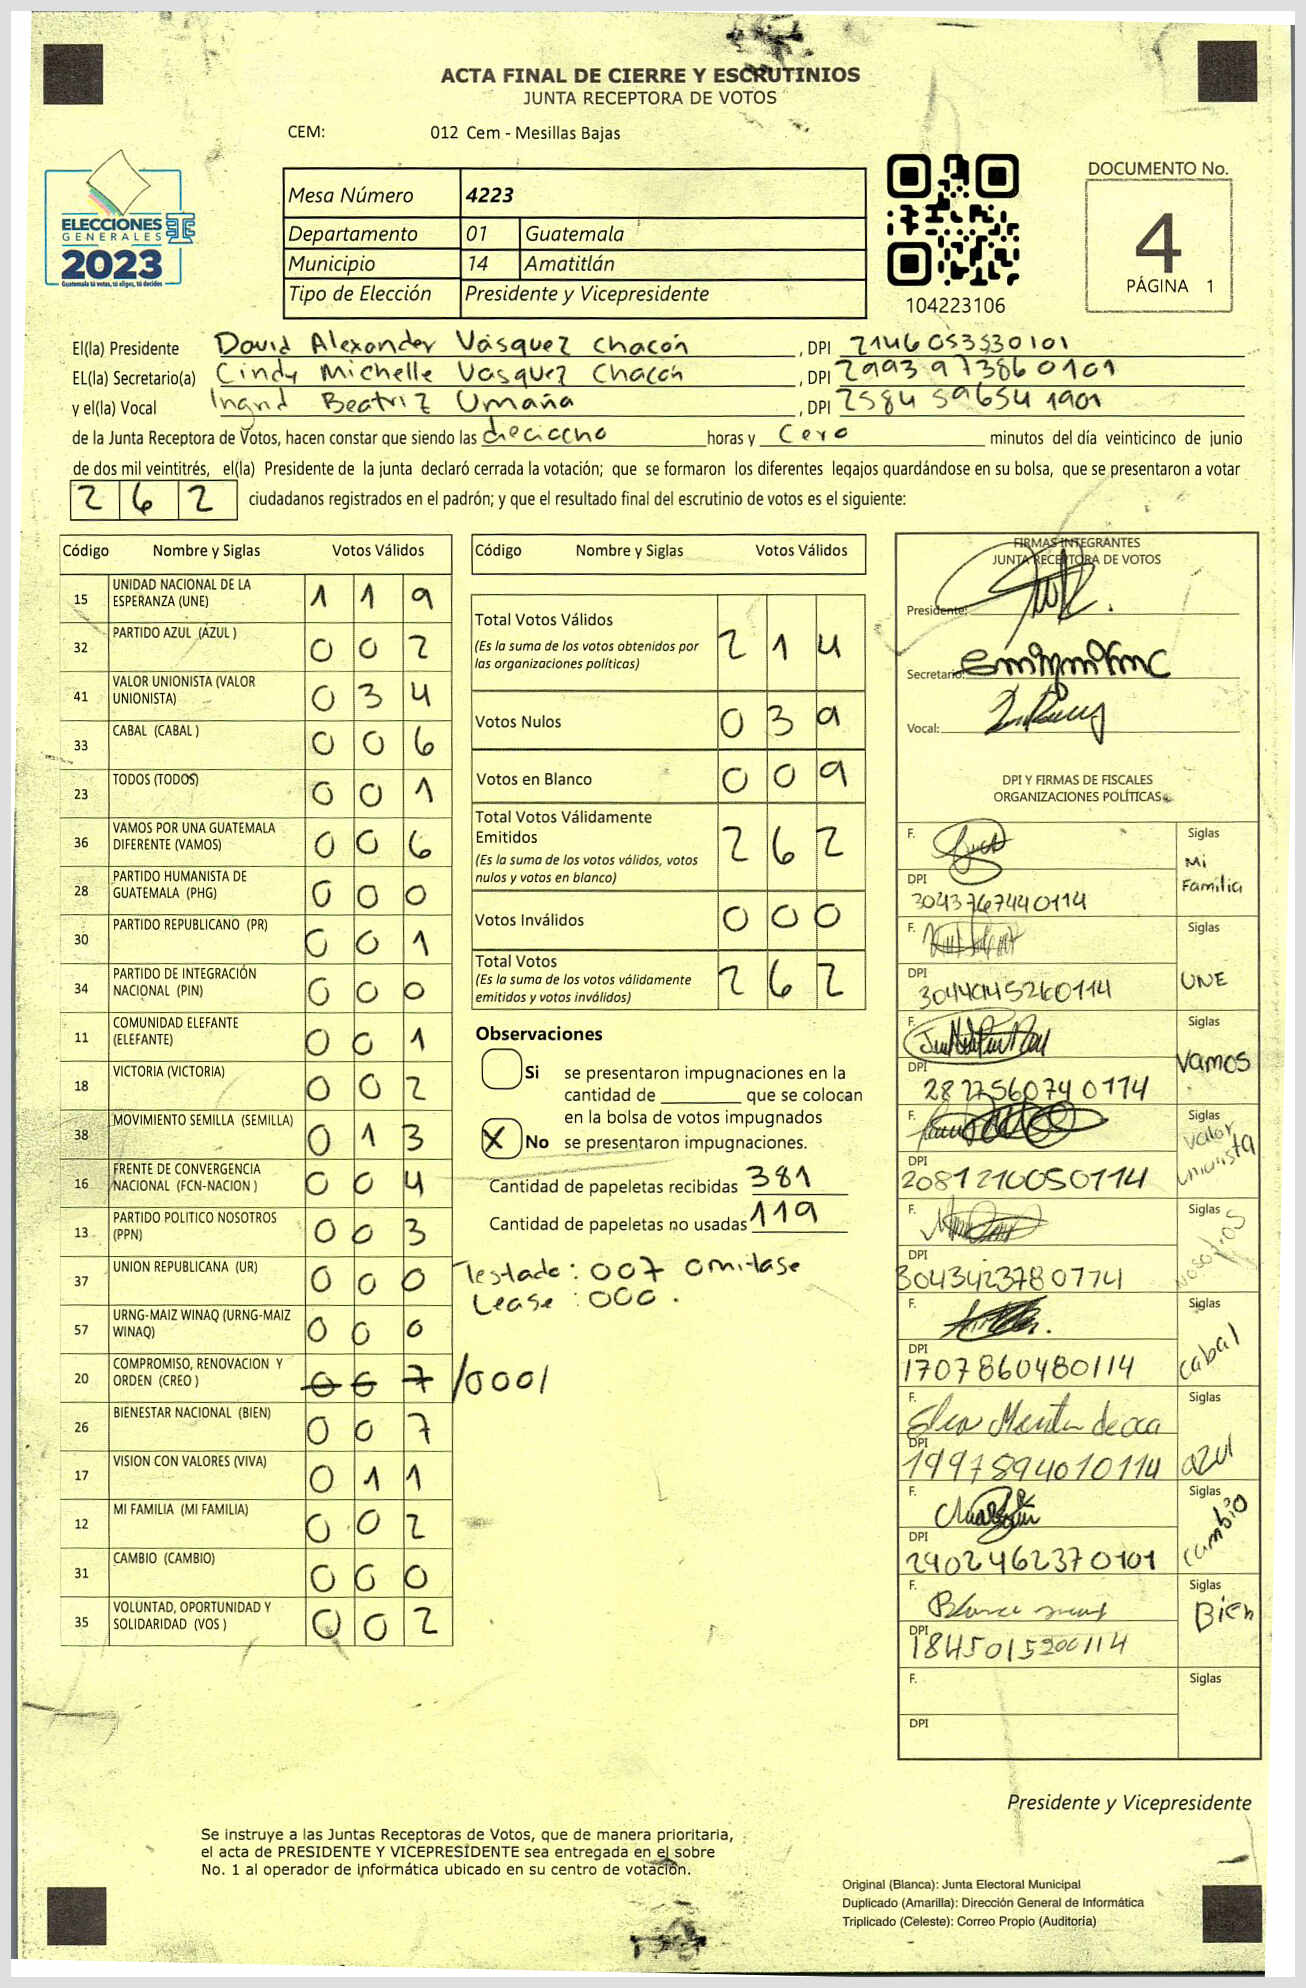 ACTA FINAL DE CIERRE Y ESCRUTINIOS
JUNTA RECEPTORA DE VOTOS
CEM: 012 Cem - Mesillas Bajas
ELECCIONES
GENERALES
2023
Guatemala tú votas, tú eliges, tú decides
Mesa Número 4223
Departamento 01 Guatemala
Municipio 14 Amatitlán
Tipo de Elección Presidente y Vicepresidente
104223106
DOCUMENTO No.
4
PÁGINA 1
El(la) Presidente David Alexander Vásquez Chacón , DPI 2146053330101
EL(la) Secretario(a) Cindy Michelle Vasquez Chacón , DPI 2993973860101
y el(la) Vocal Ingrid Beatriz Umaña , DPI 2584596541901
de la Junta Receptora de Votos, hacen constar que siendo las dieciocho horas y Cero minutos del día veinticinco de junio
de dos mil veintitrés, el(la) Presidente de la junta declaró cerrada la votación; que se formaron los diferentes legajos guardándose en su bolsa, que se presentaron a votar
262 ciudadanos registrados en el padrón; y que el resultado final del escrutinio de votos es el siguiente:
Código Nombre y Siglas Votos Válidos
15 UNIDAD NACIONAL DE LA ESPERANZA (UNE) 1 1 9
32 PARTIDO AZUL (AZUL ) 0 0 2
41 VALOR UNIONISTA (VALOR UNIONISTA) 0 3 4
33 CABAL (CABAL ) 0 0 6
23 TODOS (TODOS) 0 0 1
36 VAMOS POR UNA GUATEMALA DIFERENTE (VAMOS) 0 0 6
28 PARTIDO HUMANISTA DE GUATEMALA (PHG) 0 0 0
30 PARTIDO REPUBLICANO (PR) 0 0 1
34 PARTIDO DE INTEGRACIÓN NACIONAL (PIN) 0 0 0
11 COMUNIDAD ELEFANTE (ELEFANTE) 0 0 1
18 VICTORIA (VICTORIA) 0 0 2
38 MOVIMIENTO SEMILLA (SEMILLA) 0 1 3
16 FRENTE DE CONVERGENCIA NACIONAL (FCN-NACION ) 0 0 4
13 PARTIDO POLITICO NOSOTROS (PPN) 0 0 3
37 UNION REPUBLICANA (UR) 0 0 0
57 URNG-MAIZ WINAQ (URNG-MAIZ WINAQ) 0 0 0
20 COMPROMISO, RENOVACION Y ORDEN (CREO ) 0 0 7 /000/
26 BIENESTAR NACIONAL (BIEN) 0 0 7
17 VISION CON VALORES (VIVA) 0 1 1
12 MI FAMILIA (MI FAMILIA) 0 0 2
31 CAMBIO (CAMBIO) 0 0 0
35 VOLUNTAD, OPORTUNIDAD Y SOLIDARIDAD (VOS ) 0 0 2
Código Nombre y Siglas Votos Válidos
Total Votos Válidos 2 1 4
(Es la suma de los votos obtenidos por
las organizaciones políticas)
Votos Nulos 0 3 9
Votos en Blanco 0 0 9
Total Votos Válidamente
Emitidos 2 6 2
(Es la suma de los votos válidos, votos
nulos y votos en blanco)
Votos Inválidos 0 0 0
Total Votos 2 6 2
(Es la suma de los votos válidamente
emitidos y votos inválidos)
Observaciones
Si se presentaron impugnaciones en la
cantidad de ________ que se colocan
en la bolsa de votos impugnados
X No se presentaron impugnaciones.
Cantidad de papeletas recibidas 381
Cantidad de papeletas no usadas 119
Testado: 007 omitase
Lease: 000.
FIRMAS INTEGRANTES
JUNTA RECEPTORA DE VOTOS
Presidente:
Secretario:
Vocal:
DPI Y FIRMAS DE FISCALES
ORGANIZACIONES POLÍTICAS
F. Siglas
Mi
Familia
DPI
3043767440114
F. Siglas
UNE
DPI
3044045260114
F. Siglas
Vamos
DPI
2827560740114
F. Siglas
Valor
Unionista
DPI
2081210050114
F. Siglas
Nosotros
DPI
F. Siglas
cabal
DPI
1707860480114
F. Siglas
azul
DPI
1997894010114
F. Siglas
cambio
DPI
2902462370101
F. Siglas
Bien
DPI
1845015200114
F. Siglas
DPI
Presidente y Vicepresidente
Se instruye a las Juntas Receptoras de Votos, que de manera prioritaria,
el acta de PRESIDENTE Y VICEPRESIDENTE sea entregada en el sobre
No. 1 al operador de informática ubicado en su centro de votación.
Original (Blanca): Junta Electoral Municipal
Duplicado (Amarilla): Dirección General de Informática
Triplicado (Celeste): Correo Propio (Auditoría)